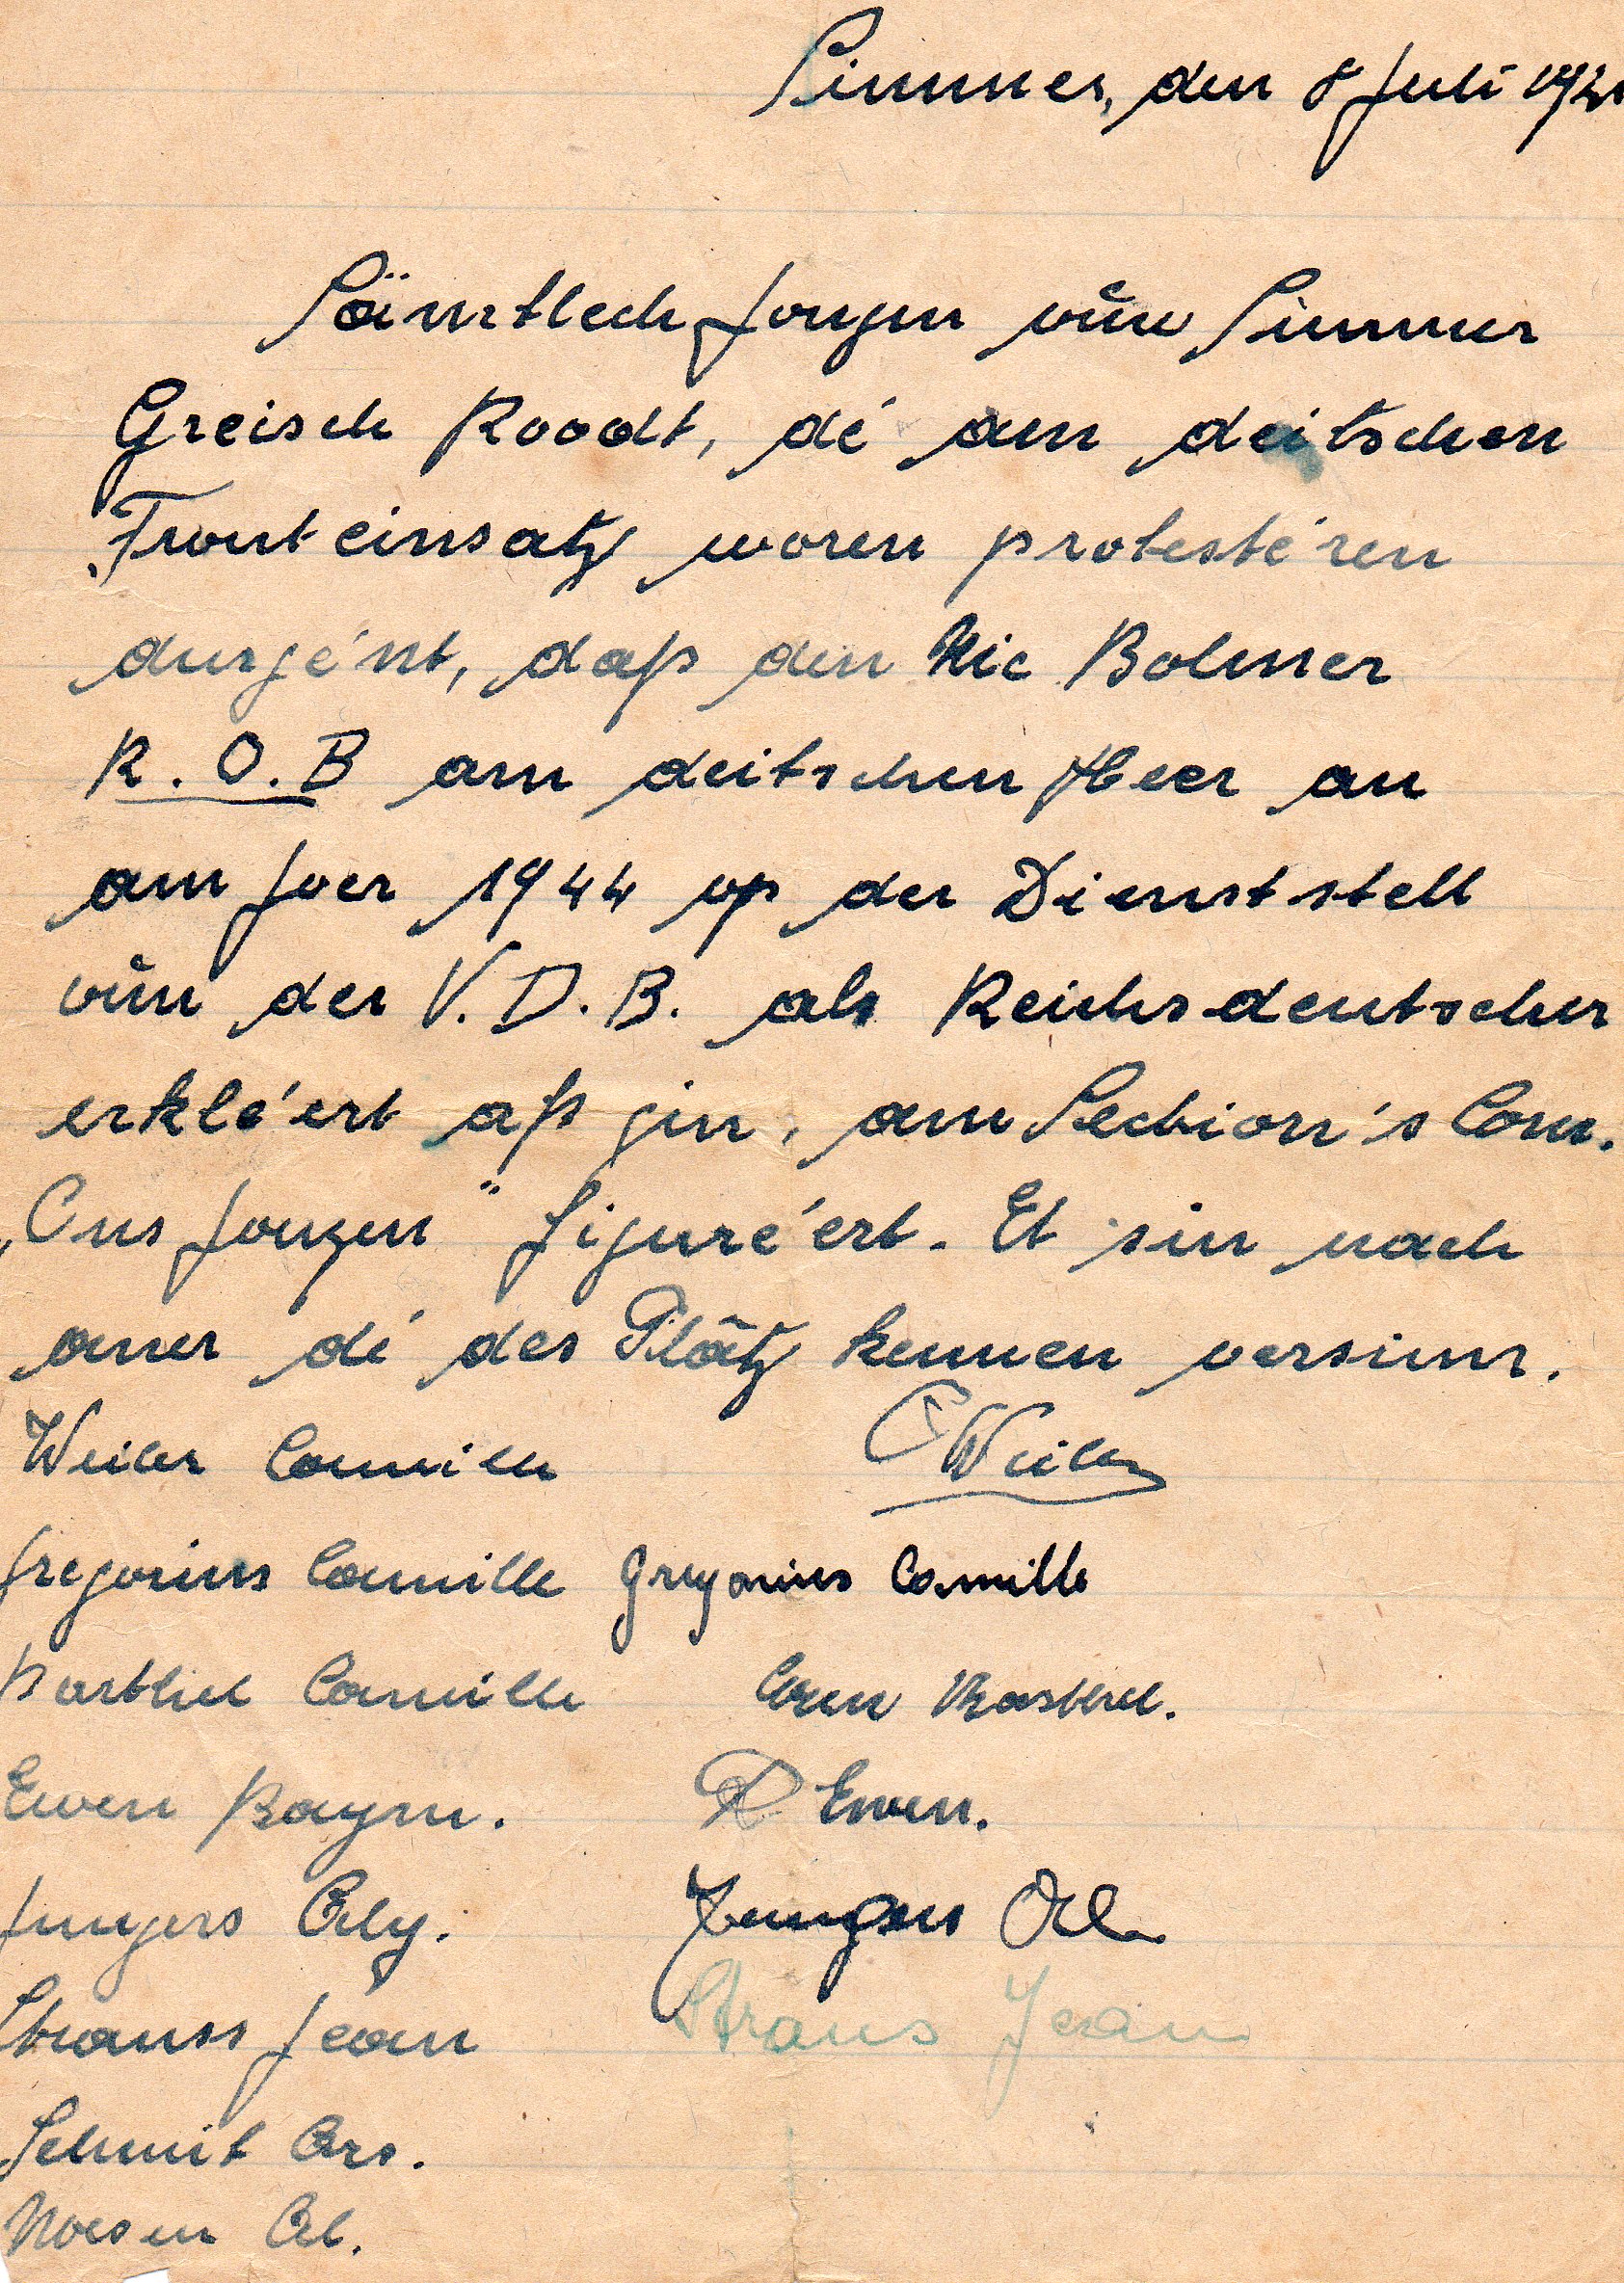 Simmer, den 8 Juli 194
Sämtlech Jongen vŭn Simmer
Greisch Roodt, dé am deitschen
Fronteinsatz woren protestéren
durgént, daß den Nic Bolmer
R.O.B am deitschen Heer an
am Joer 1944 op der Dienststell
vŭn der V.D.B. als Reichsdeutscher
erkléert aß gin, am Section's Com.
„Ons Jongen" figuréert. Et sin nach
aner dé des Plätz kennen versinn.
Weiler Camille C Weiler
Gregorius Camille Gregorius Camille
Barthel Camille Cam Barthel.
Ewen Raym. R Ewen.
Jungers Aly. Jungers Al
Strauss Jean Straus Jean
Schmit Ars.
Noesen Al.